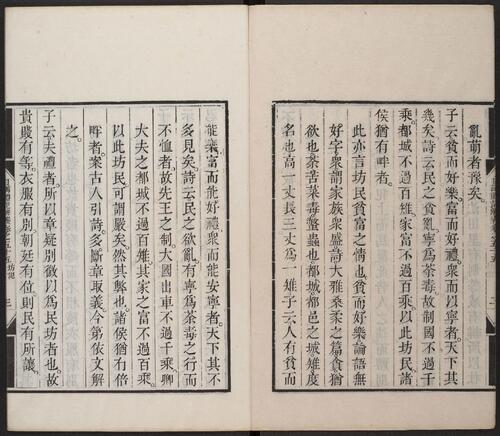 亂萌者豫矣。
子云貧而好樂富而好禮。衆而以寧者。天下其
幾矣詩云民之貪亂。寧爲荼毒。故制國不過千
乘。都城不過百雉。家富不過百乘。以此坊民諸
侯猶有畔者。
此亦言坊民貧富之情也。貧而好樂論語無
好字衆謂家族衆盛詩大雅桑柔之篇貪猶
欲也荼苦菜毒螫蟲也都城都邑之城雉度
名也高一丈長三丈爲一雉子云人有貧而
能樂富而能好禮衆而能安寧者。天下其不
多見矣詩云民之欲亂。有寧爲荼毒之行而
不恤者故先王之制。大國出車不過千乘。卿
大夫之都城不過百雉其家之富不過百乘。
以此坊民可謂嚴矣。然其弊也。諸侯猶有倍
畔者。案古人引詩。多斷章取義今第依文解
之。
子云夫禮者。所以章疑別微以爲民坊者也。故
貴賤有等。衣服有別。朝廷有位則民有所讓。